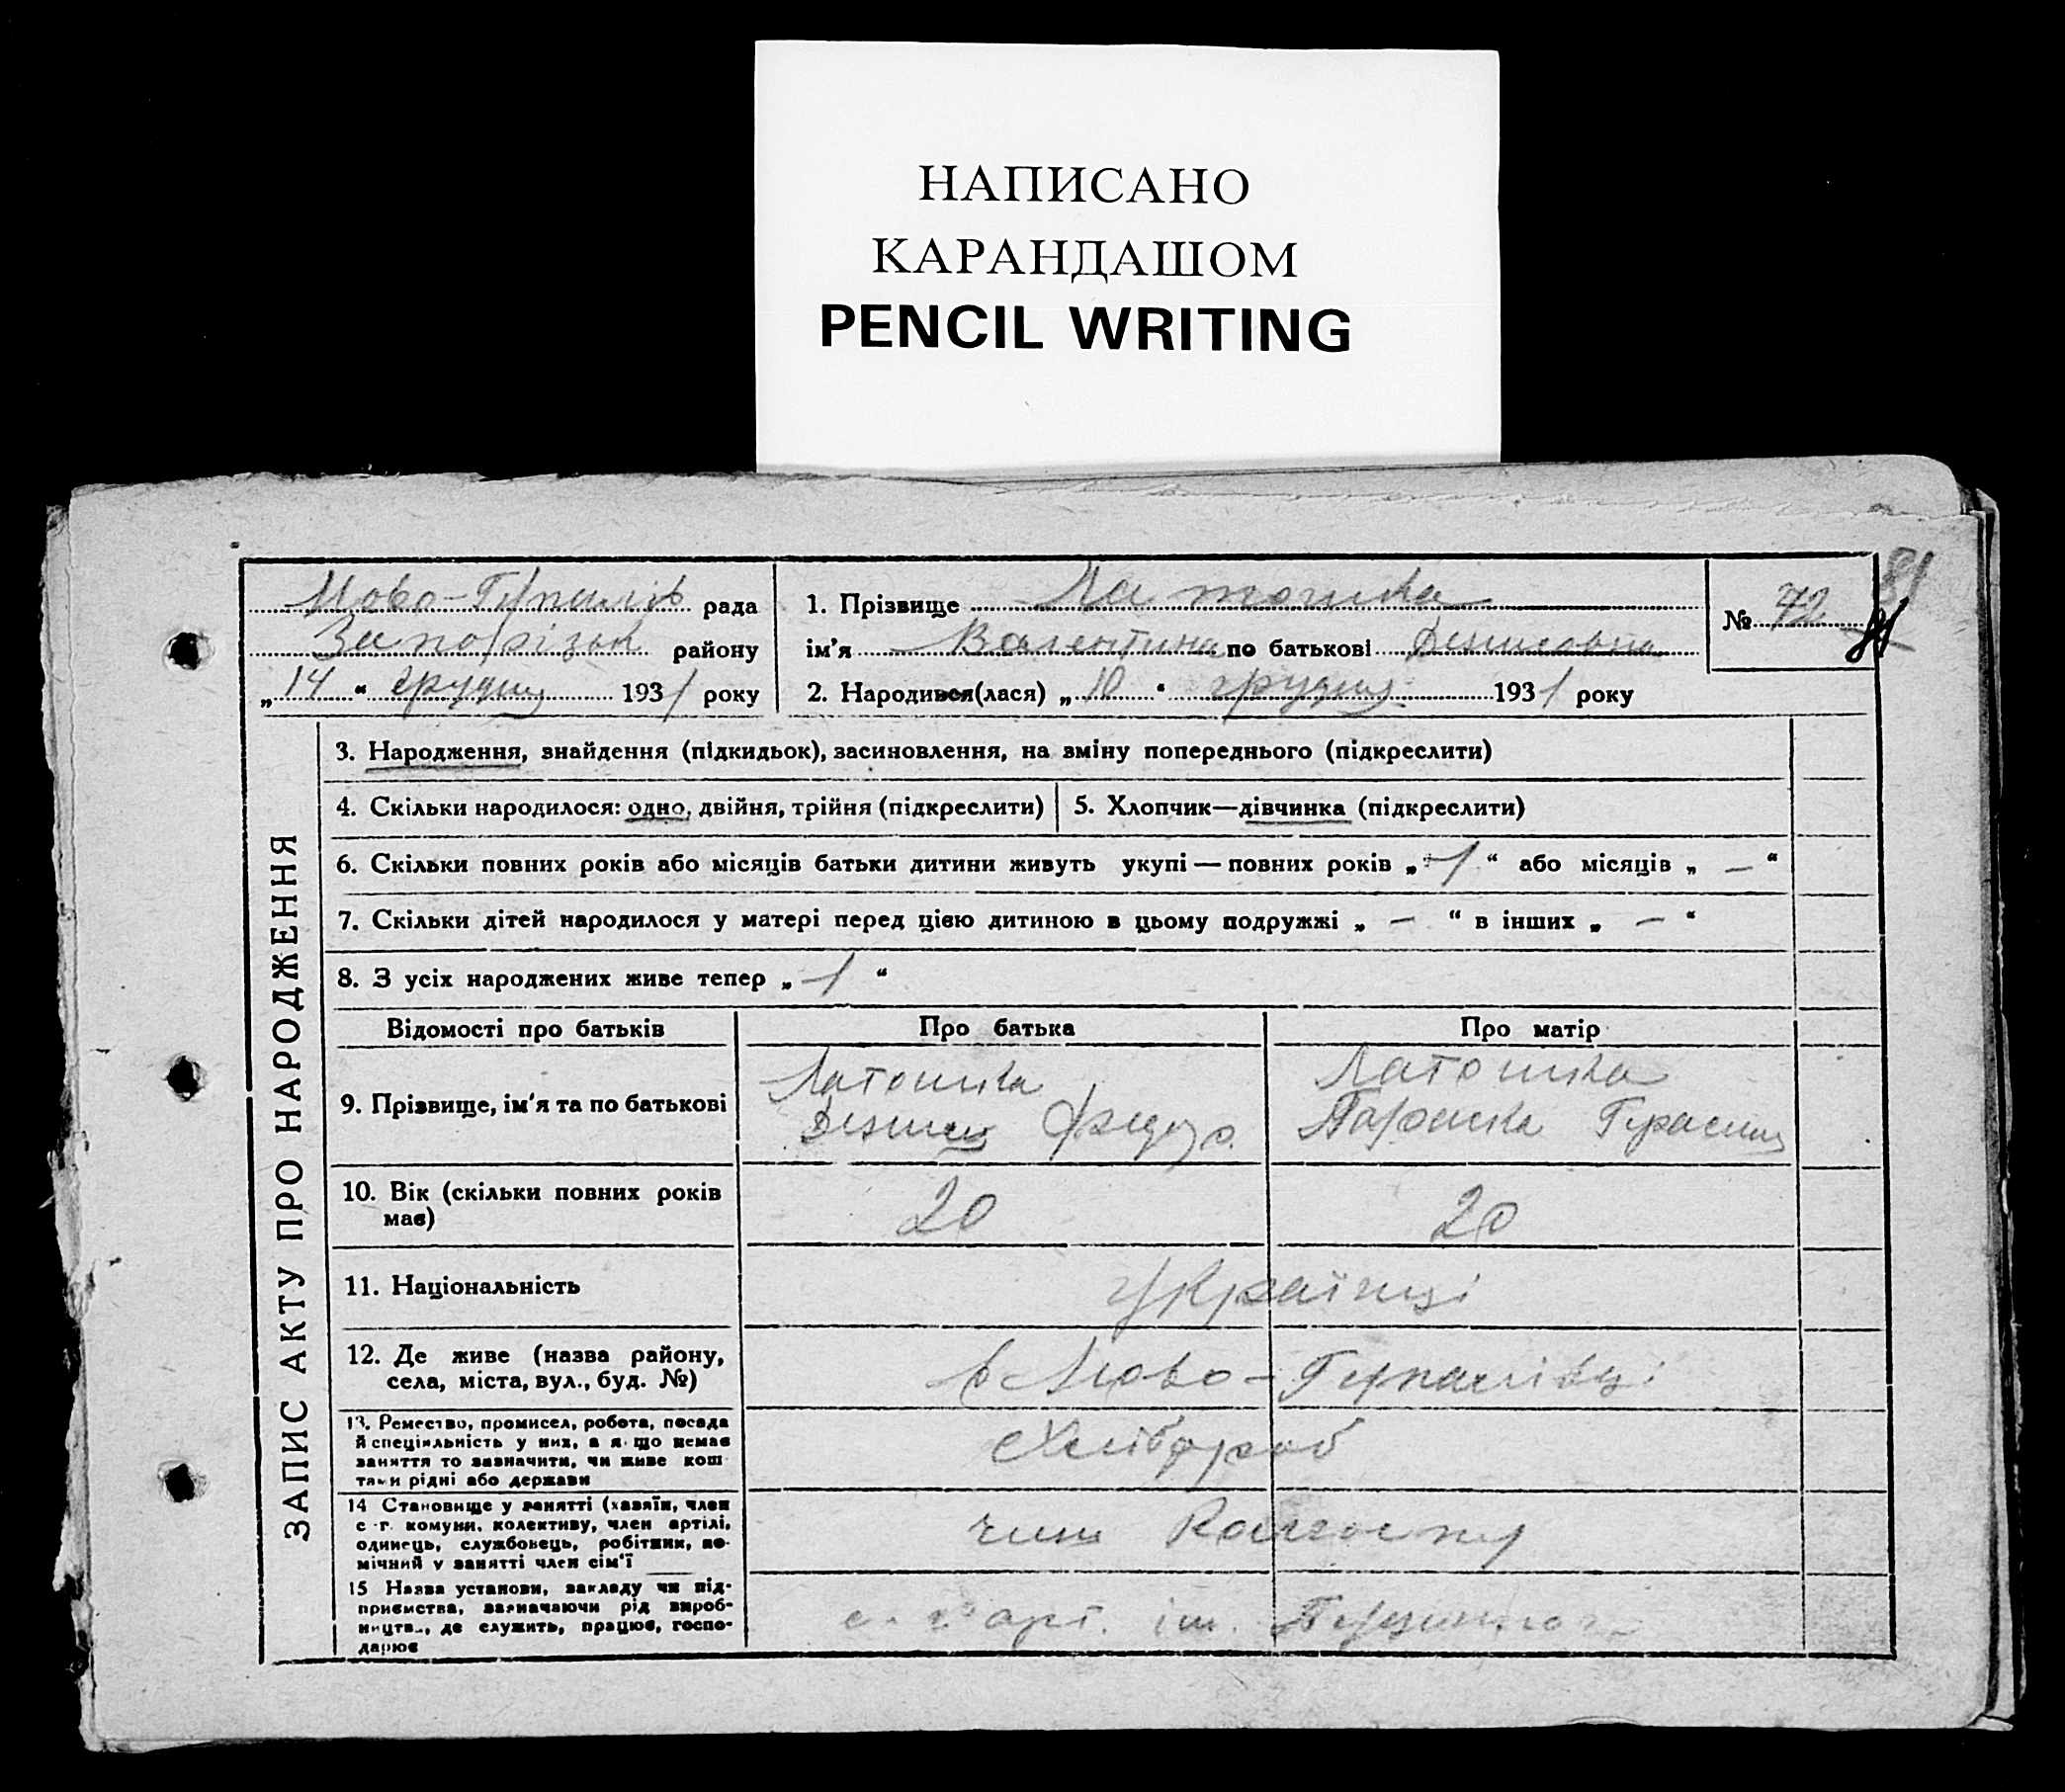 НАПИСАНО
КАРАНДАШОМ
PENCIL WRITING
81
Ново- рада
Запорізьк району
„ 14 “ грудня 1931 року
1. Прізвище Латошка
ім'я Валентина по батькові Денисовна
2. Народився(лася) „ 10 “ грудня 1931 року
№ 72
ЗАПИС АКТУ ПРО НАРОДЖЕННЯ
3. Народження, знайдення (підкидьок), засиновлення, на зміну попереднього (підкреслити)
4. Скільки народилося: одно, двійня, трійня (підкреслити)
5. Хлопчик—дівчинка (підкреслити)
6. Скільки повних років або місяців батьки дитини живуть укупі — повних років „ 1 “ або місяців „ — “
7. Скільки дітей народилося у матері перед цією дитиною в цьому подружжі „ — “ в інших „ — “
8. З усіх народжених живе тепер „ 1 “
Відомості про батьків
Про батька
Про матір
9. Прізвище, ім'я та по батькові
Латошка
Денис Федор.
Латошка
Параска Герасим
10. Вік (скільки повних років
має)
20
20
11. Національність
Українці
12. Де живе (назва району,
села, міста, вул., буд. №)
в Ново-
13. Ремество, промисел, робота, посада
й спеціяльність у них, а якщо немає
заняття то зазначити, чи живе кош
тами рідні або держави
Хлібороб
14 Становище у занятті (хазяїн, член
с.-г. комуни, колективу, член артілі,
одинець, службовець, робітник, по-
мічний у занятті член сім'ї
член Колгоспу
15 Назва установи, закладу чи під-
приємства, зазначаючи рід вироб-
ництва, де служить, працює, госпо-
дарює
с. г. арт. ім.